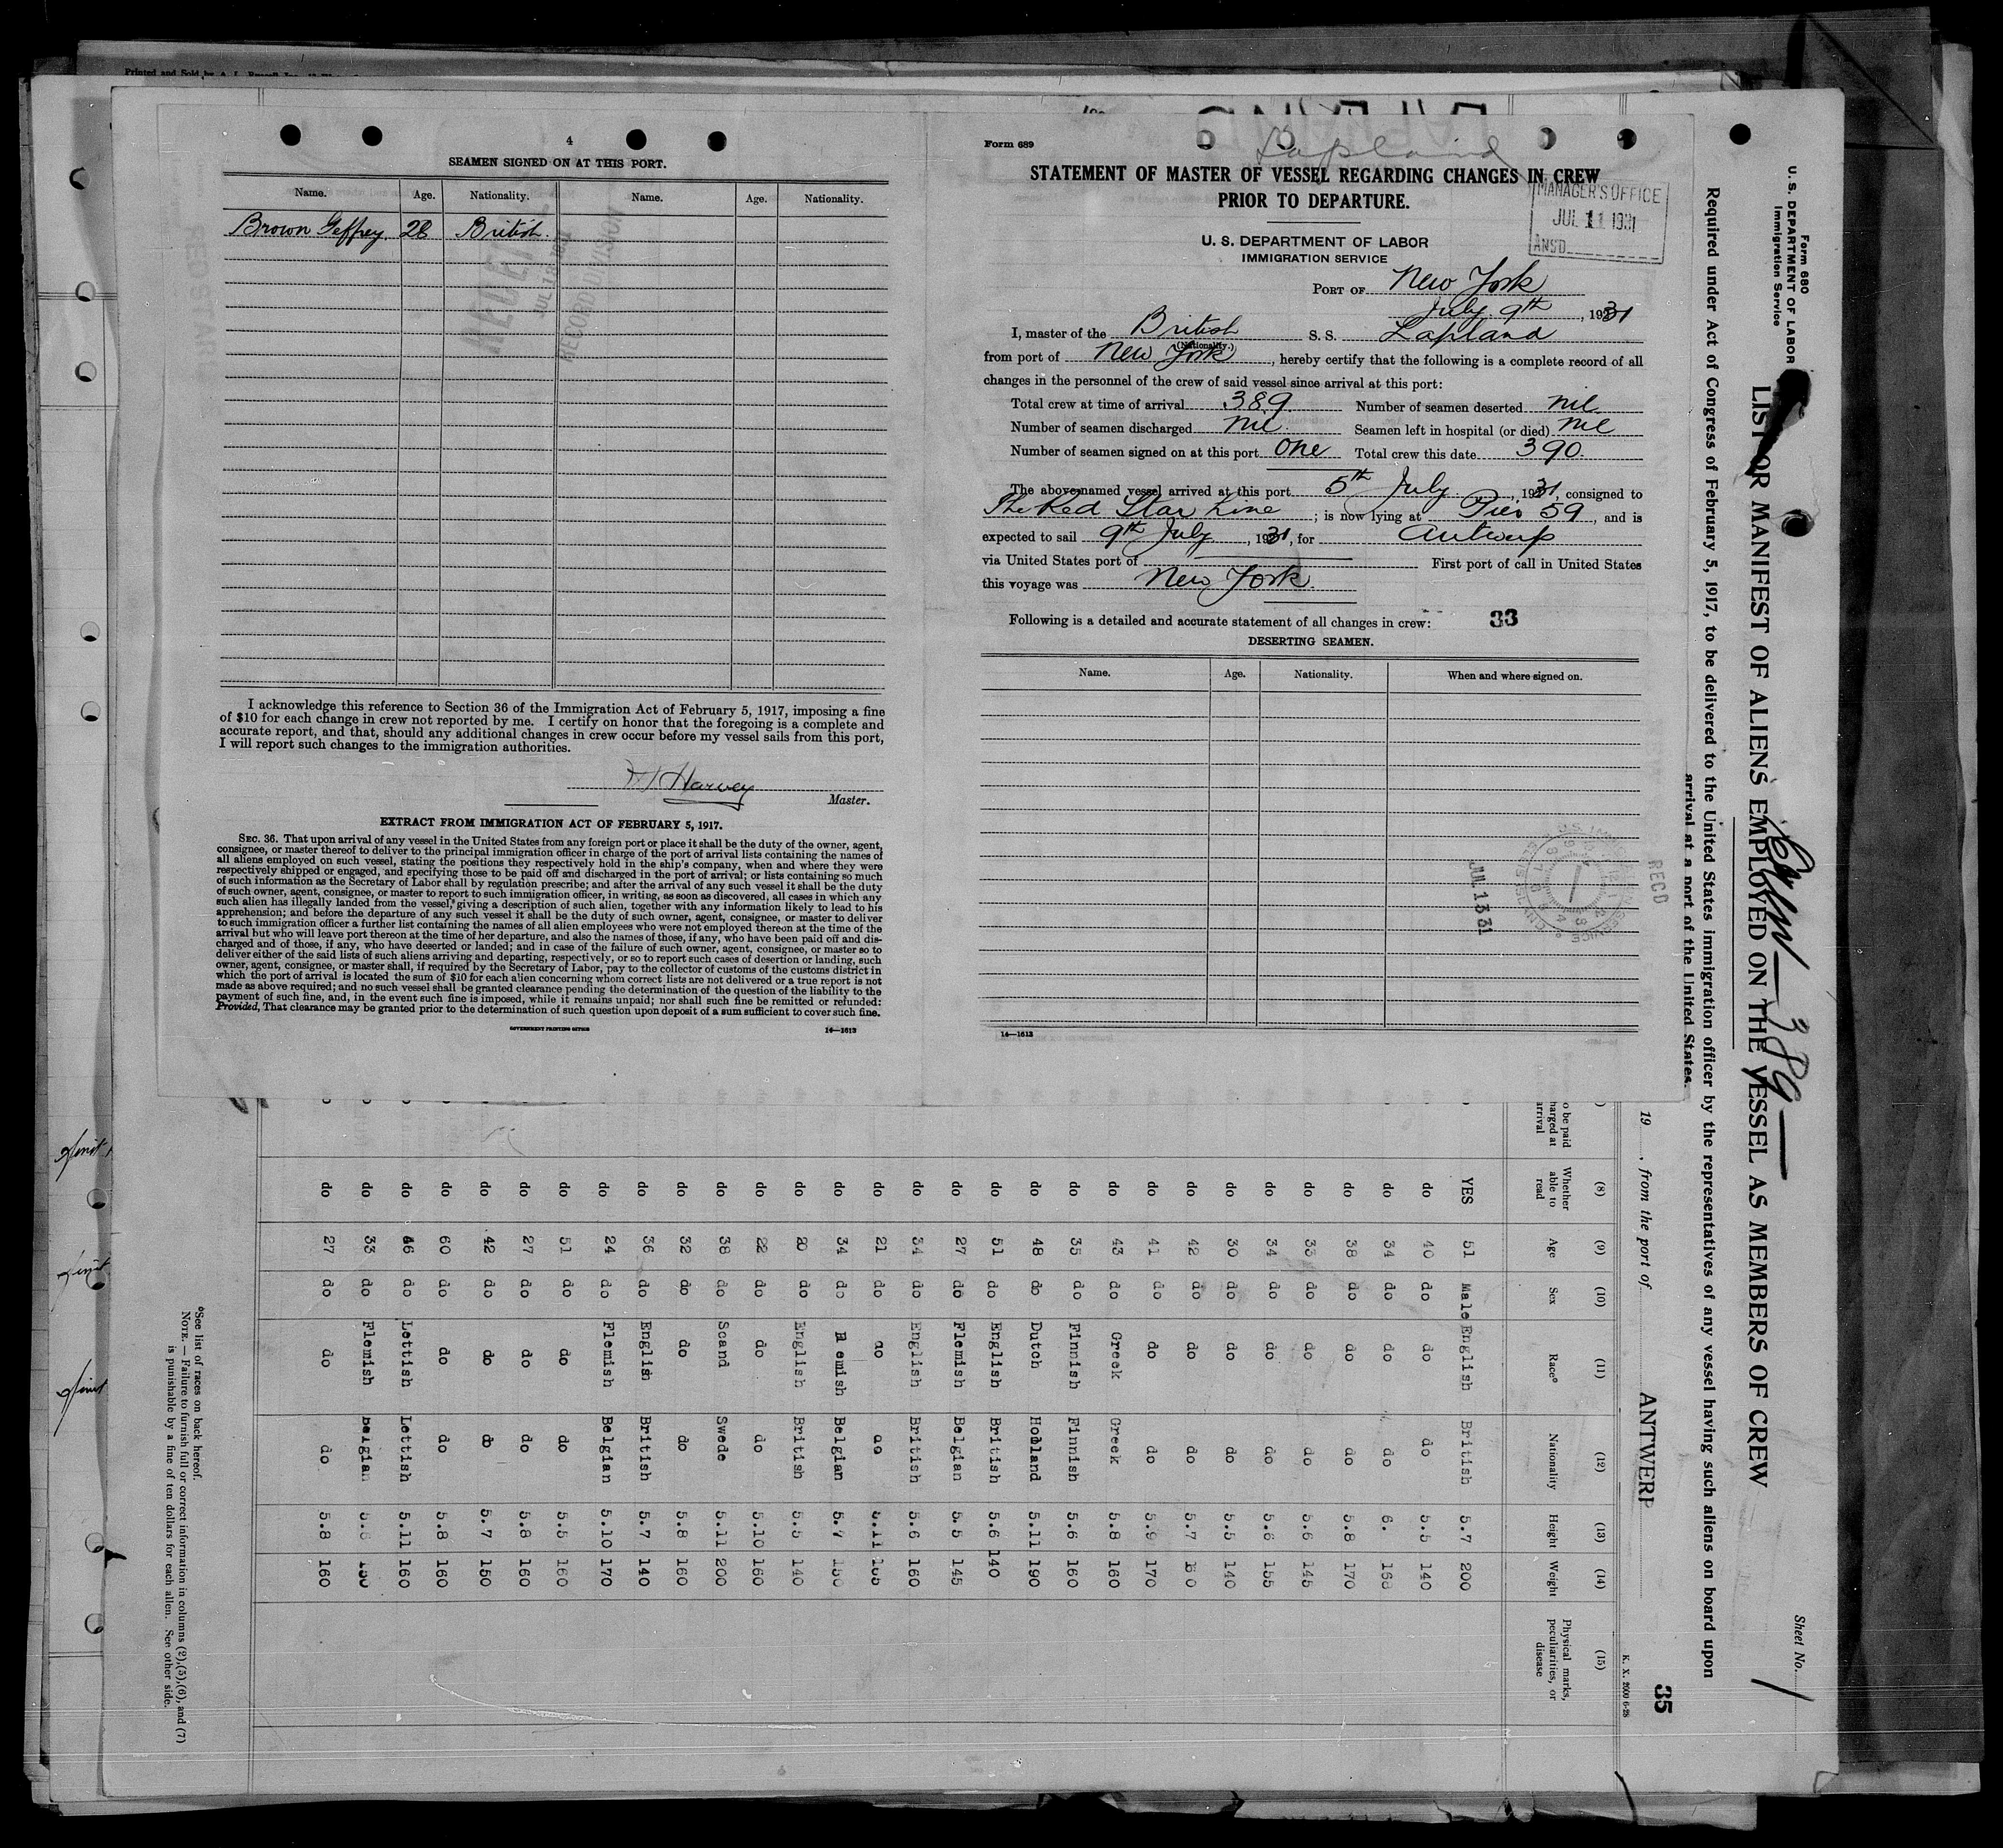 4
SEAMEN SIGNED ON AT THIS PORT.
Name. Age. Nationality. Name. Age. Nationality.
Brown Geffrey. 28 British.
I acknowledge this reference to Section 36 of the Immigration Act of February 5, 1917, imposing a fine
of $10 for each change in crew not reported by me. I certify on honor that the foregoing is a complete and
accurate report, and that, should any additional changes in crew occur before my vessel sails from this port,
I will report such changes to the immigration authorities.
Harvey
Master.
EXTRACT FROM IMMIGRATION ACT OF FEBRUARY 5, 1917.
SEC. 36. That upon arrival of any vessel in the United States from any foreign port or place it shall be the duty of the owner, agent,
consignee, or master thereof to deliver to the principal immigration officer in charge of the port of arrival lists containing the names of
all aliens employed on such vessel, stating the positions they respectively hold in the ship's company, when and where they were
respectively shipped or engaged, and specifying those to be paid off and discharged in the port of arrival; or lists containing so much
of such information as the Secretary of Labor shall by regulation prescribe; and after the arrival of any such vessel it shall be the duty
of such owner, agent, consignee, or master to report to such immigration officer, in writing, as soon as discovered, all cases in which any
such alien has illegally landed from the vessel, giving a description of such alien, together with any information likely to lead to his
apprehension; and before the departure of any such vessel it shall be the duty of such owner, agent, consignee, or master to deliver
to such immigration officer a further list containing the names of all alien employees who were not employed thereon at the time of the
arrival but who will leave port thereon at the time of her departure, and also the names of those, if any, who have been paid off and dis-
charged and of those, if any, who have deserted or landed; and in case of the failure of such owner, agent, consignee, or master so to
deliver either of the said lists of such aliens arriving and departing, respectively, or so to report such cases of desertion or landing, such
owner, agent, consignee, or master shall, if required by the Secretary of Labor, pay to the collector of customs of the customs district in
which the port of arrival is located the sum of $10 for each alien concerning whom correct lists are not delivered or a true report is not
made as above required; and no such vessel shall be granted clearance pending the determination of the question of the liability to the
payment of such fine, and, in the event such fine is imposed, while it remains unpaid; nor shall such fine be remitted or refunded:
Provided, That clearance may be granted prior to the determination of such question upon deposit of a sum sufficient to cover such fine.
GOVERNMENT PRINTING OFFICE 14—1613
Form 689
Lapland
STATEMENT OF MASTER OF VESSEL REGARDING CHANGES IN CREW
PRIOR TO DEPARTURE.
MANAGER'S OFFICE
JUL 11 1931
ANS'D
U. S. DEPARTMENT OF LABOR
IMMIGRATION SERVICE
PORT OF New York
July 9th, 1931
I, master of the British S. S. Lapland
(Nationality.)
from port of New York, hereby certify that the following is a complete record of all
changes in the personnel of the crew of said vessel since arrival at this port:
Total crew at time of arrival 389. Number of seamen deserted nil.
Number of seamen discharged nil. Seamen left in hospital (or died) nil
Number of seamen signed on at this port one Total crew this date 390.
The above-named vessel arrived at this port 5th July, 1931, consigned to
The Red Star Line; is now lying at Pier 59, and is
expected to sail 9th July, 1931, for Antwerp
via United States port of First port of call in United States
this voyage was New York.
Following is a detailed and accurate statement of all changes in crew: 33
DESERTING SEAMEN.
Name. Age. Nationality. When and where signed on.
JUL 13 31
RECD
14—1613
Form 680
U. S. DEPARTMENT OF LABOR
Immigration Service
Sheet No. 1
LIST OR MANIFEST OF ALIENS EMPLOYED ON THE VESSEL AS MEMBERS OF CREW
389
Required under Act of Congress of February 5, 1917, to be delivered to the United States immigration officer by the representatives of any vessel having such aliens on board upon
arrival at a port of the United States.
35
19 , from the port of ANTWERP
K. X. 2000 6-28
(8) (9) (10) (11) (12) (13) (14) (15)
Whether able to read Age Sex Race° Nationality Height Weight Physical marks, peculiarities, or disease
YES 51 Male English British 5.7 200
do 40 do do do 5.5 140
do 34 do do do 6. 158
do 38 do do do 5.8 170
do 35 do do do 5.6 145
do 34 do do do 5.6 155
do 30 do do do 5.5 140
do 42 do do do 5.7
do 41 do do do 5.9 170
do 43 do Greek Greek 5.8 160
do 35 do Finnish Finnish 5.6 160
do 48 do Dutch Holland 5.11 190
do 51 do English British 5.6 140
do 27 do Flemish Belgian 5.5 145
do 34 do English British 5.6 160
do 21 do do do 5.11
do 34 do Flemish Belgian 5.7
do 20 do English British 5.5 140
do 22 do do do 5.10 160
do 38 do Scand Swede 5.11 200
do 32 do do do 5.8 160
do 36 do English British 5.7 140
do 24 do Flemish Belgian 5.10 170
do 51 do do do 5.5 160
do 27 do do do 5.8 160
do 42 do do do 5.7 150
do 60 do do do 5.8 160
do 46 do Lettish Lettish 5.11 160
do 33 do Flemish Belgian
do 27 do do do 5.8 160
°See list of races on back hereof.
NOTE. — Failure to furnish full or correct information in columns (2),(5),(6), and (7)
is punishable by a fine of ten dollars for each alien. See other side.